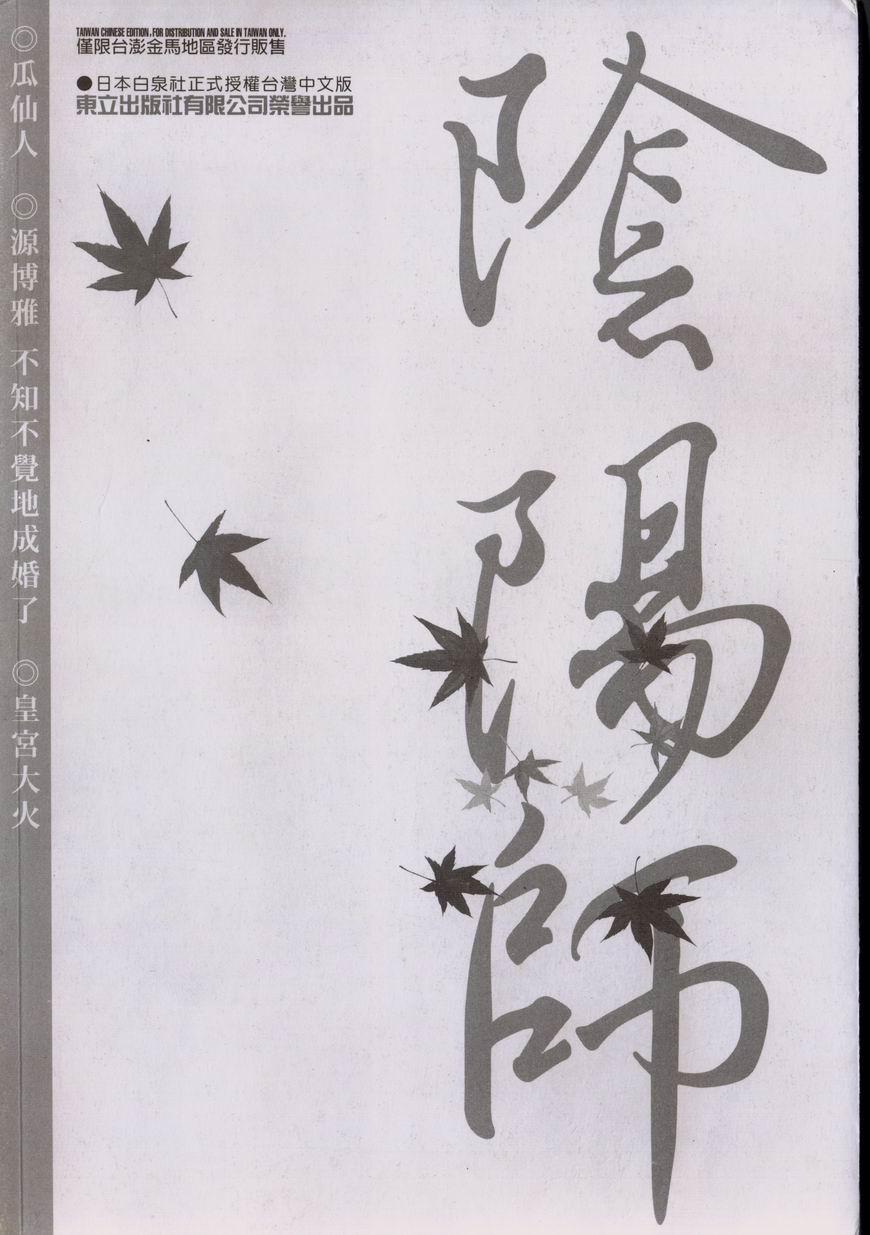 TAIWAN CHINESE EDITION, FOR DISTRIBUTION AND SALE IN TAIWAN ONLY.
僅限台澎金馬地區發行販售
●日本白泉社正式授權台灣中文版
東立出版社有限公司榮譽出品
陰陽師
◎瓜仙人 ◎源博雅 不知不覺地成婚了 ◎皇宮大火